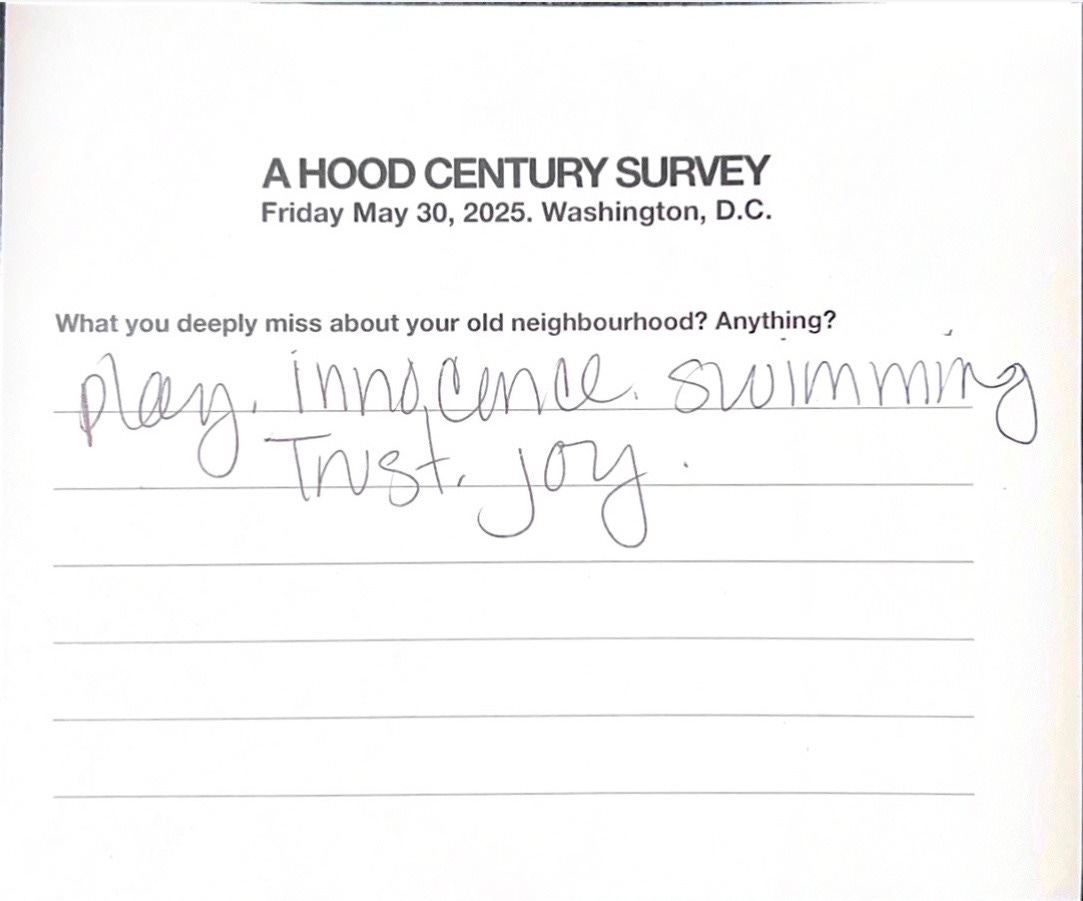 A HOOD CENTURY SURVEY
Friday May 30, 2025. Washington, D.C.
What you deeply miss about your old neighbourhood? Anything?
play. innocence. swimming
Trust. joy.